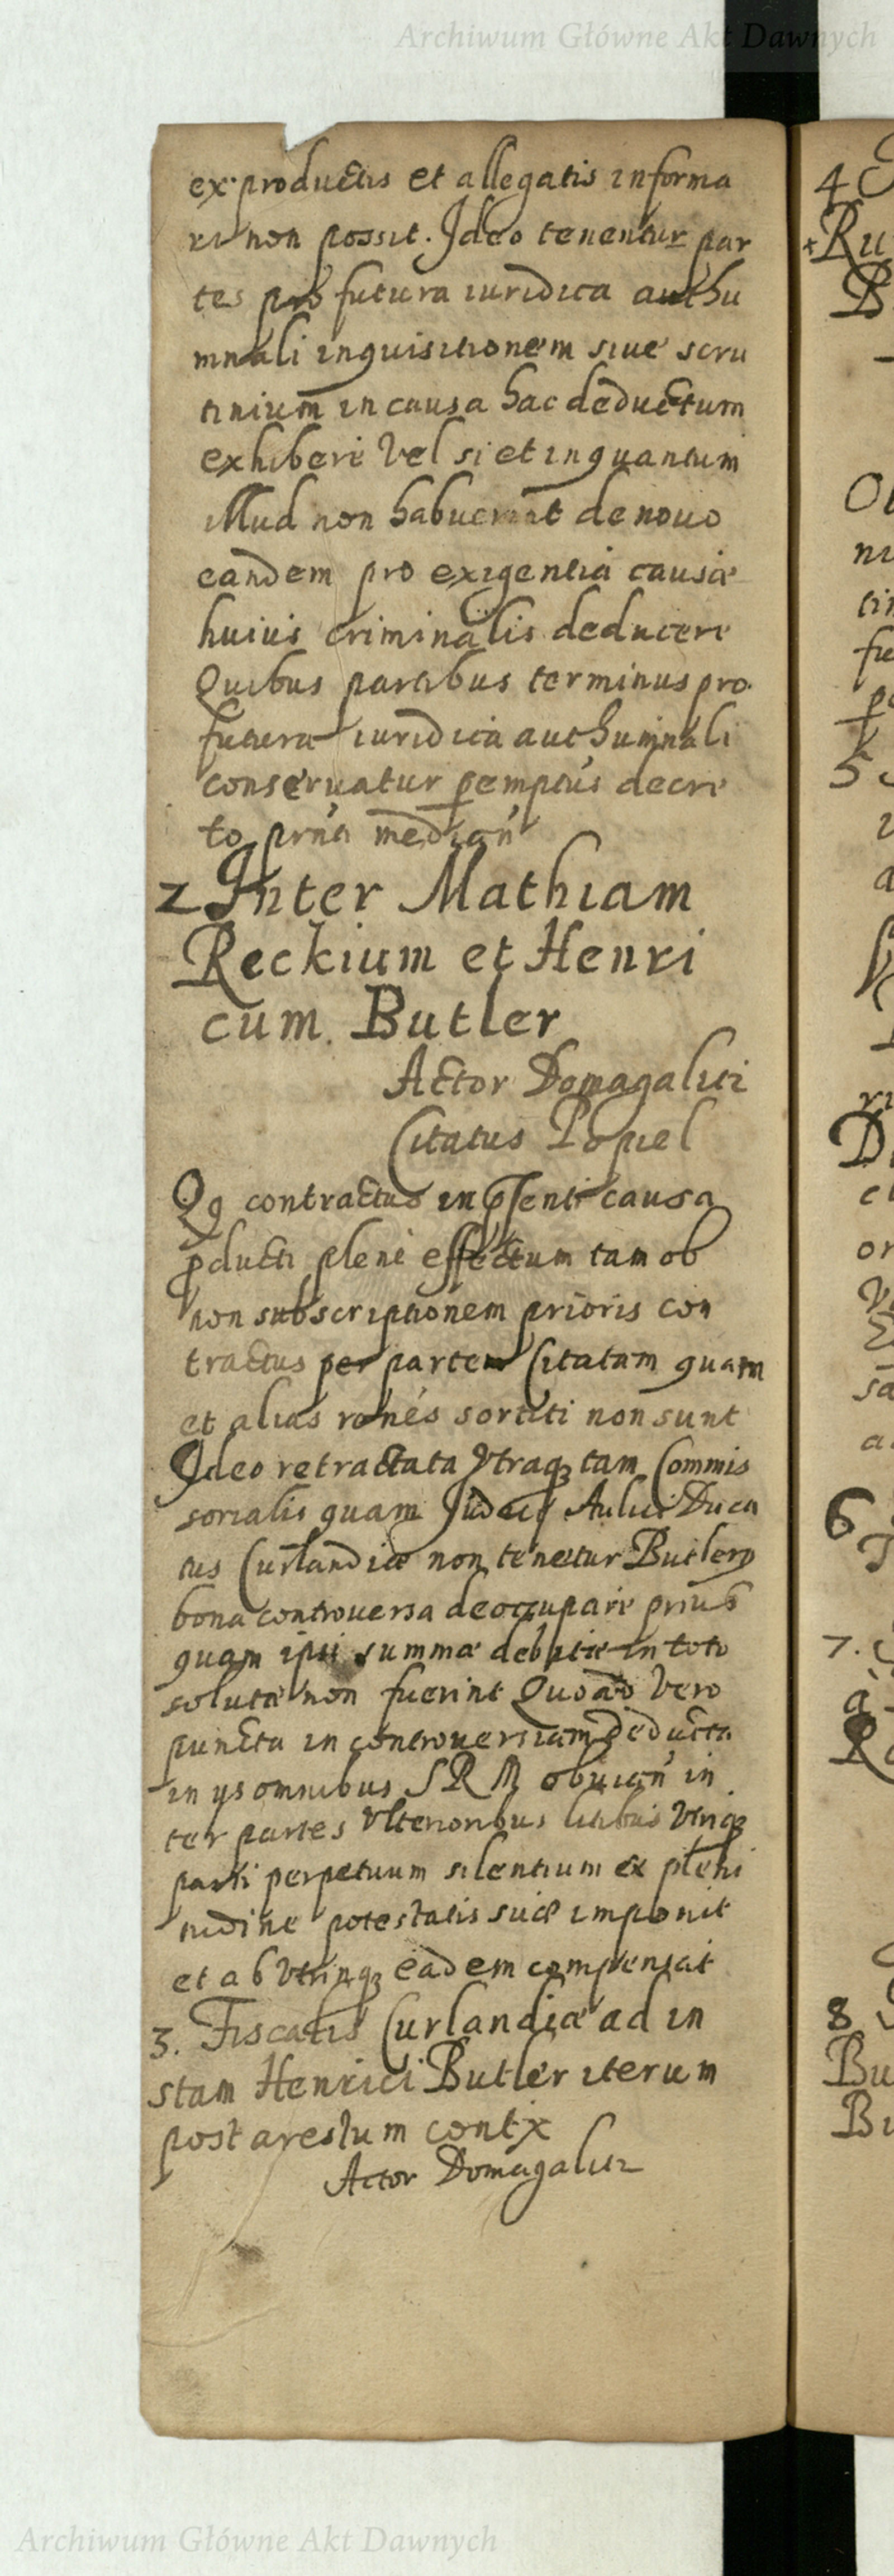 Archiwum Główne Akt Dawnych
ex productis et allegatis informa
ri non possit. Ideo tenentur par
tes pro futura iuridica authu
mnali inquisitionem siue scru
tinium in causa hac deductum
exhiberi vel si et inquantum
illud non habuerint de nouo
eandem pro exigentia causæ
huius criminalis deducere
Quibus partibus terminus pro
futura iuridica authumnali
conseruatur pemptus decre
to prna median
2 Inter Mathiam
Reckium et Henri
cum. Butler
Actor Domagalici
Citatus Popiel
Qq contractus in pssenti causa
pducti pleni effectum tam ob
non subscriptionem prioris con
tractus per partem Citatam quam
et alias rones sortiti non sunt
Ideo retractata Vtraqz tam Commis
sorialis quam Aulici Duca
tus Curlandiæ non tenetur Butlero
bona controuersa deoccupare prius
quam ipsi summæ debitæ in toto
solutæ non fuerint Quoad vero
puncta in controuersiam deducta
in ys omnibus S R M obuian in
ter partes vlterioribus litibus vtriqz
parti perpetuum silentium ex pleni
tudine potestatis suæ imponit
et ab vtrinqz eadem compensat
3. Fiscalis Curlandiæ ad in
stam Henrici Butler iterum
post arestum contx
Actor Domagalicz
4
Ru
B
Ol
ni
tin
fu
5
6
7.
8
Bu
Archiwum Główne Akt Dawnych